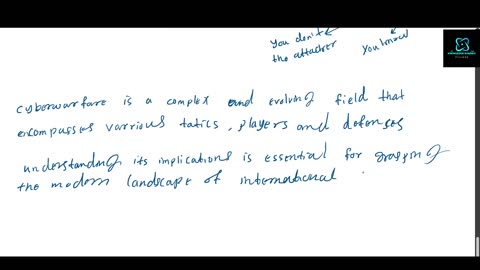 You don't
the attacker
You know
cyberwarfare is a complex and evolving field that
encompasses various tatics, players and defenses
understanding its implications is essential for grasping
the modern landscape of international